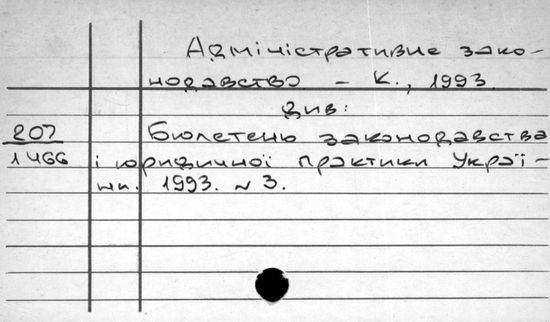 Адміністративне зако-
нодавство – К., 1993.
див:
207 Бюлетень законодавства
1466 і юридичної практики Украї-
ни. 1993. № 3.